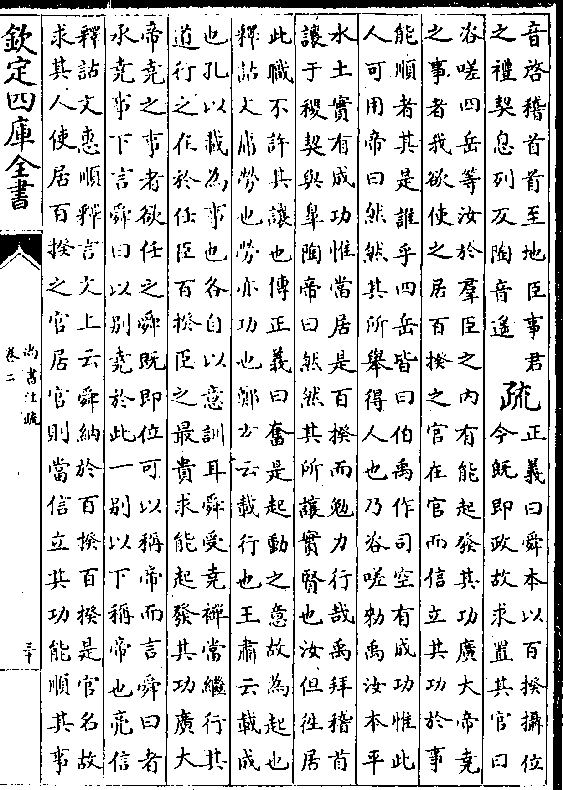 音啓稽首首至地臣事君
之禮契息列反陶音遥
疏
正義曰舜本以百揆攝位
今既即政故求置其官曰
咨嗟四岳等汝於羣臣之內有能起發其功廣大帝堯
之事者我欲使之居百揆之官在官而信立其功於事
能順者其是誰乎四岳皆曰伯禹作司空有成功惟此
人可用帝曰然然其所舉得人也乃咨嗟勑禹汝本平
水土實有成功惟當居是百揆而勉力行哉禹拜稽首
讓于稷契與皐陶帝曰然然其所讓實賢也汝但往居
此職不許其讓也傳正義曰奮是起動之意故為起也
釋詁文庸勞也勞亦功也鄭𤣥云載行也王肅云載成
也孔以載為事也各自以意訓耳舜受堯禪當繼行其
道行之在於任臣百揆臣之最貴求能起發其功廣大
帝堯之事者欲任之舜既即位可以稱帝而言舜曰者
承堯事下言舜曰以別堯於此一別以下稱帝也亮信
釋詁文惠順釋言文上云舜納於百揆百揆是官名故
求其人使居百揆之官居官則當信立其功能順其事
欽定四庫全書
尚書注疏
卷二
三十